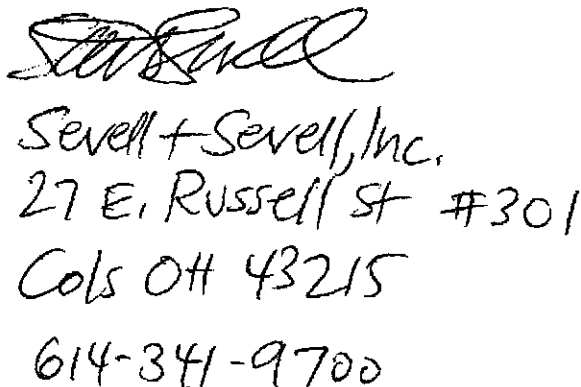 Sevell + Sevell, Inc.
27 E. Russell St #301
Cols OH 43215
614-341-9700